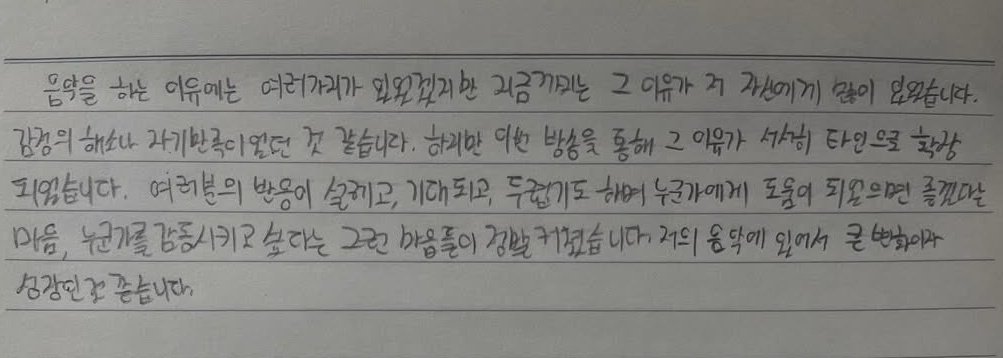 음악을 하는 이유에는 여러가지가 있겠지만 지금까지는 그 이유가 저 자신에게 많이 있었습니다.
감정의 해소나 자기만족이었던 것 같습니다. 하지만 이번 방송을 통해 그 이유가 서서히 타인으로 확장
되었습니다. 여러분의 반응이 설레고, 기대되고, 두렵기도 하며 누군가에게 도움이 되었으면 좋겠다는
마음, 누군가를 감동시키고 싶다는 그런 마음들이 정말 커졌습니다. 저의 음악에 있어서 큰 변화이자
성장인 것 같습니다.